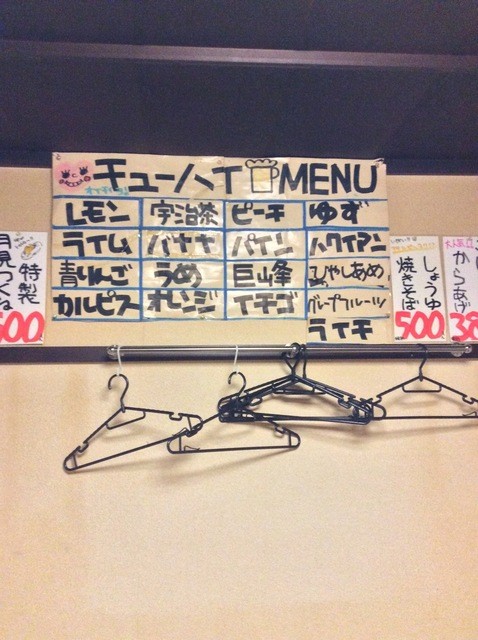 チューハイ MENU
レモン 宇治茶 ピーチ ゆず
ライム バナナ パイン ハワイアン
青りんご うめ 巨峰 ひやしあめ
カルピス オレンジ イチゴ グレープフルーツ
ライチ
特製
月見つくね
500
しょうゆ
焼きそば
500
大人気
からあげ
38